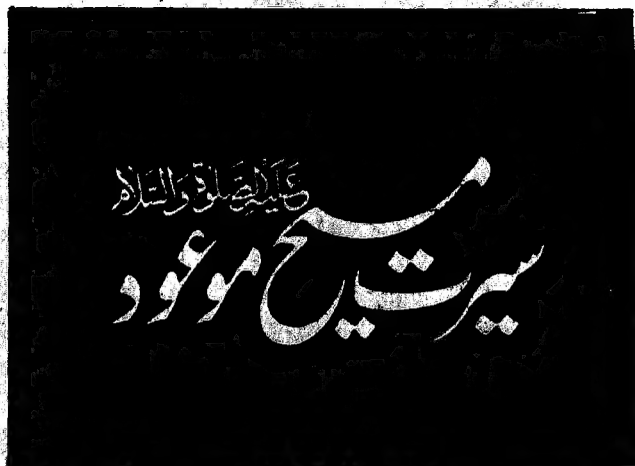 سیرت مسیح موعود
عَلَيْهِ الصَّلٰوةُ وَالسَّلَام